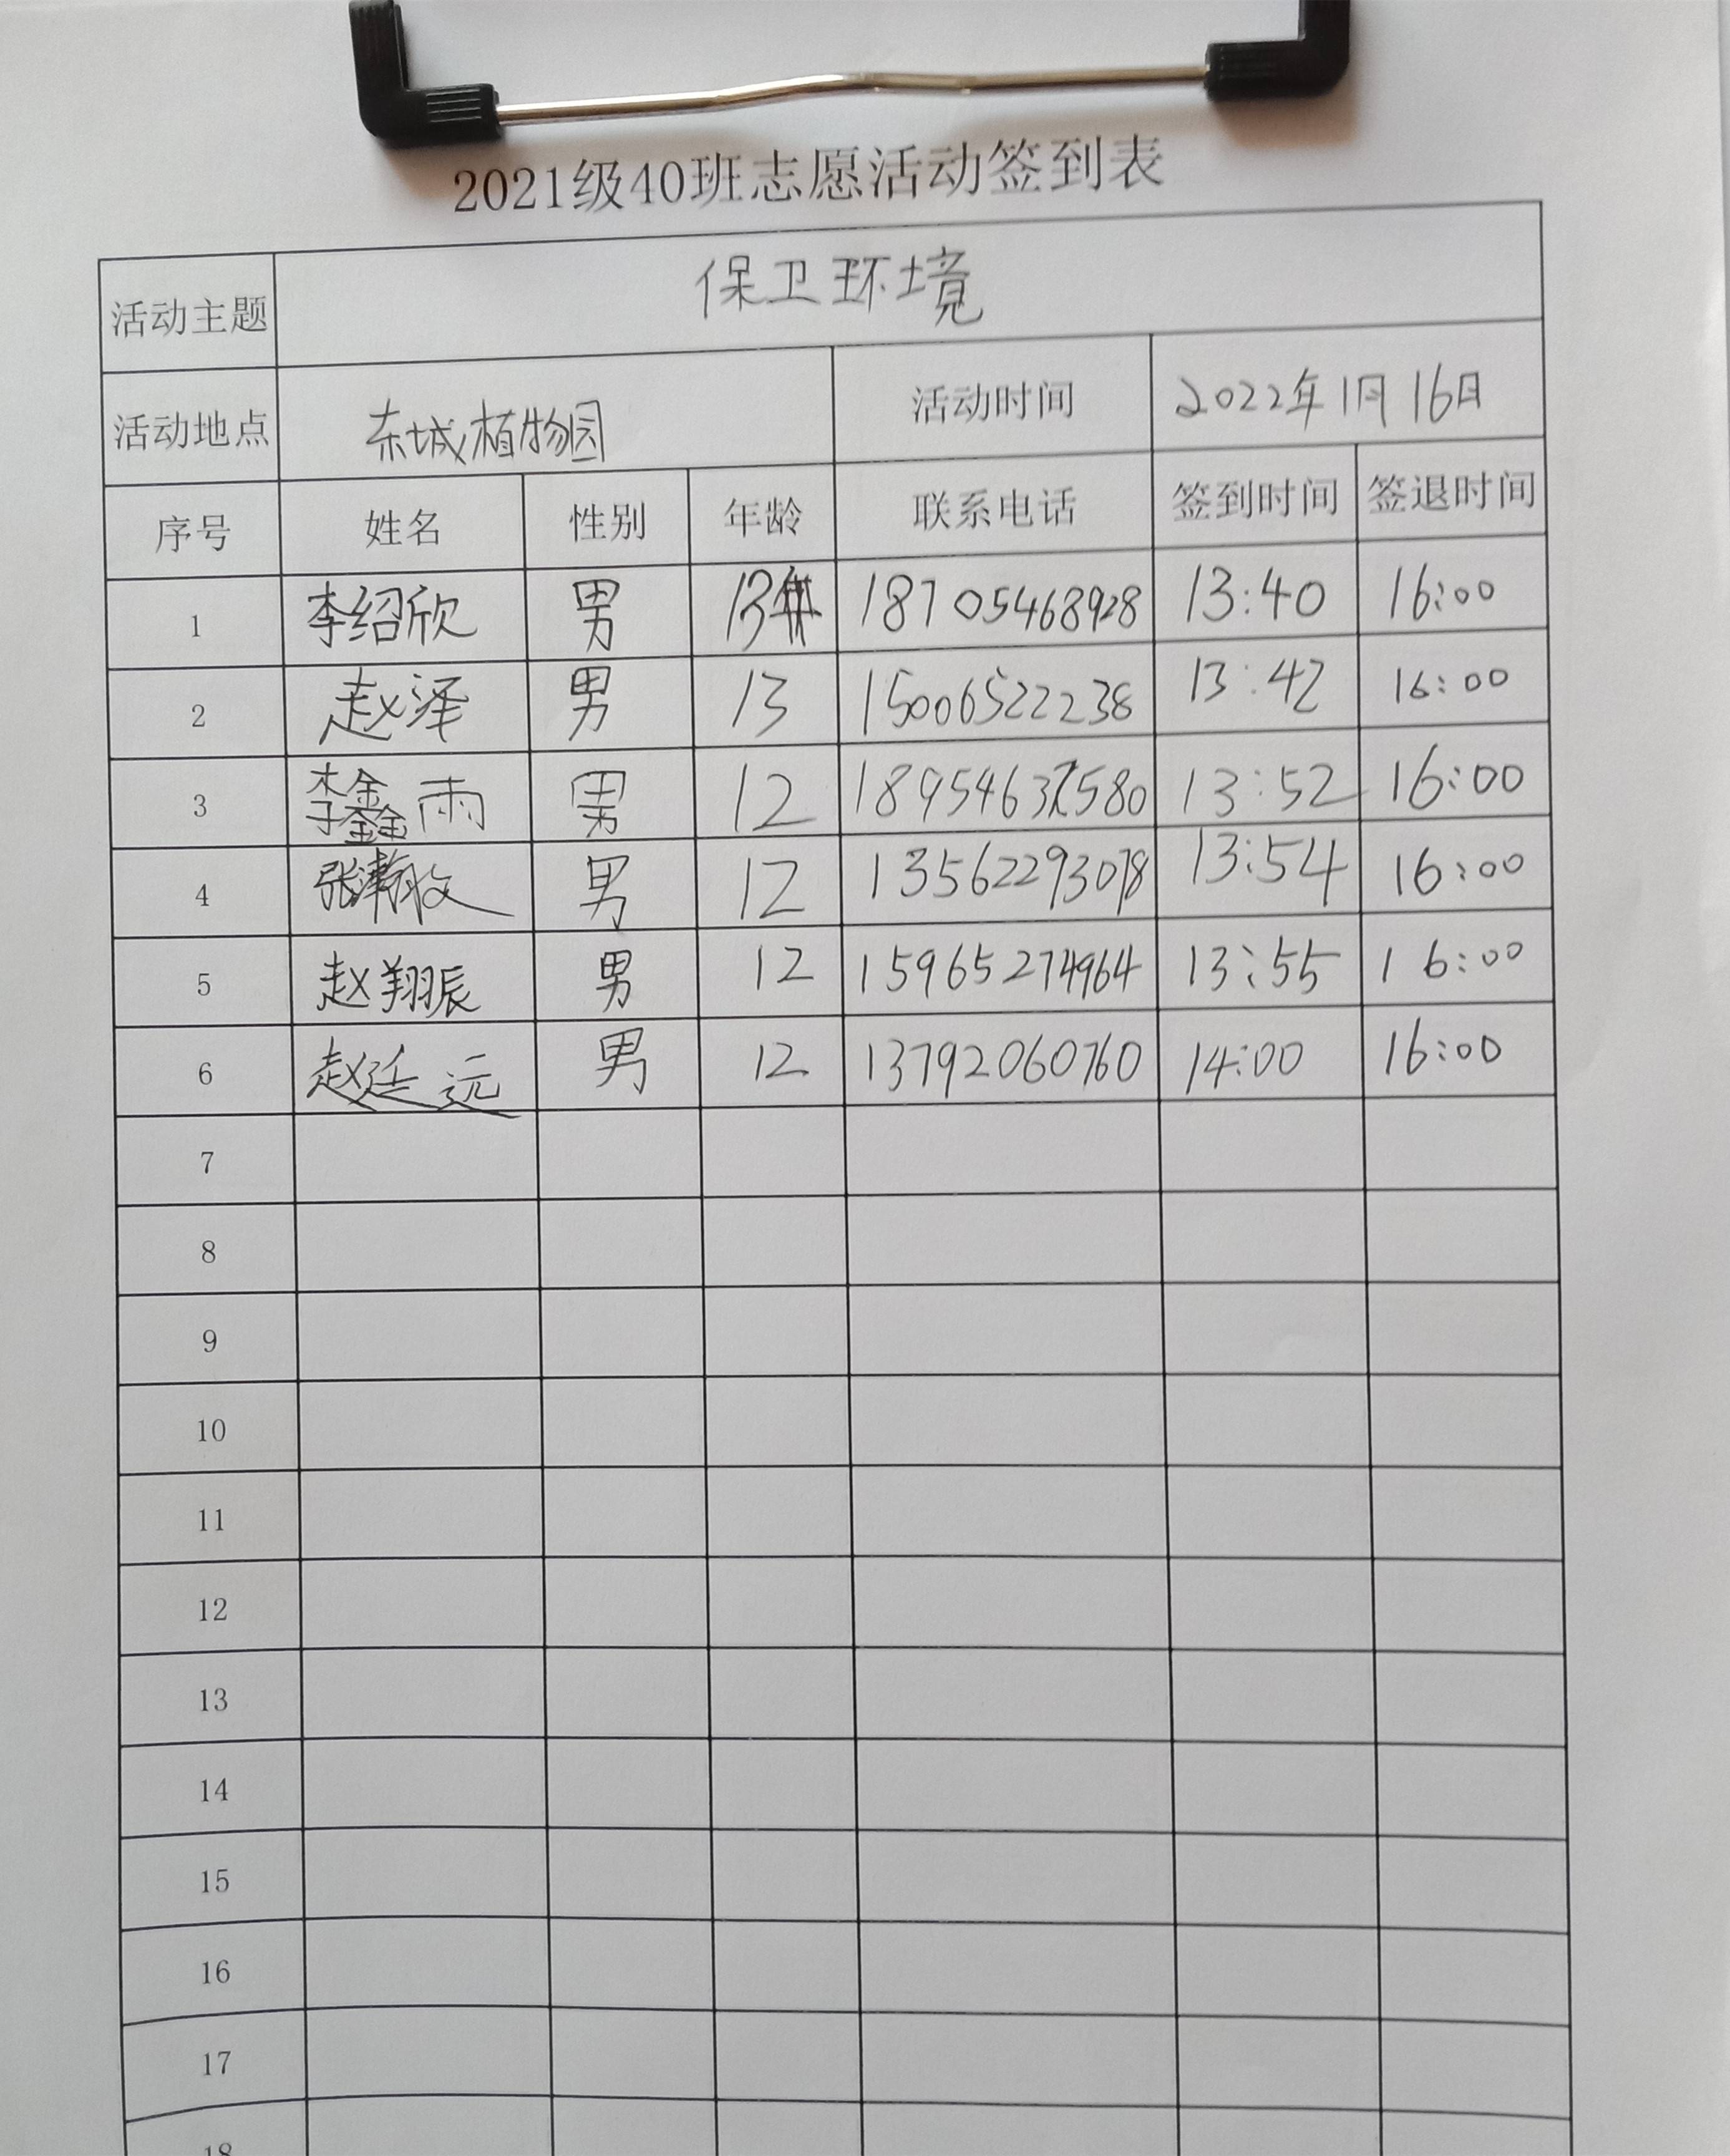 2021级40班志愿活动签到表
活动主题 保卫环境
活动地点 东城植物园 活动时间 2022年1月16日
序号 姓名 性别 年龄 联系电话 签到时间 签退时间
1 李绍欣 男 13 18705468928 13:40 16:00
2 赵泽 男 13 15006522238 13:42 16:00
3 李鑫雨 男 12 13:52 16:00
4 男 12 13562293078 13:54 16:00
5 赵翔辰 男 12 15965274964 13:55 16:00
6 赵廷远 男 12 13792060760 14:00 16:00
7
8
9
10
11
12
13
14
15
16
17
18